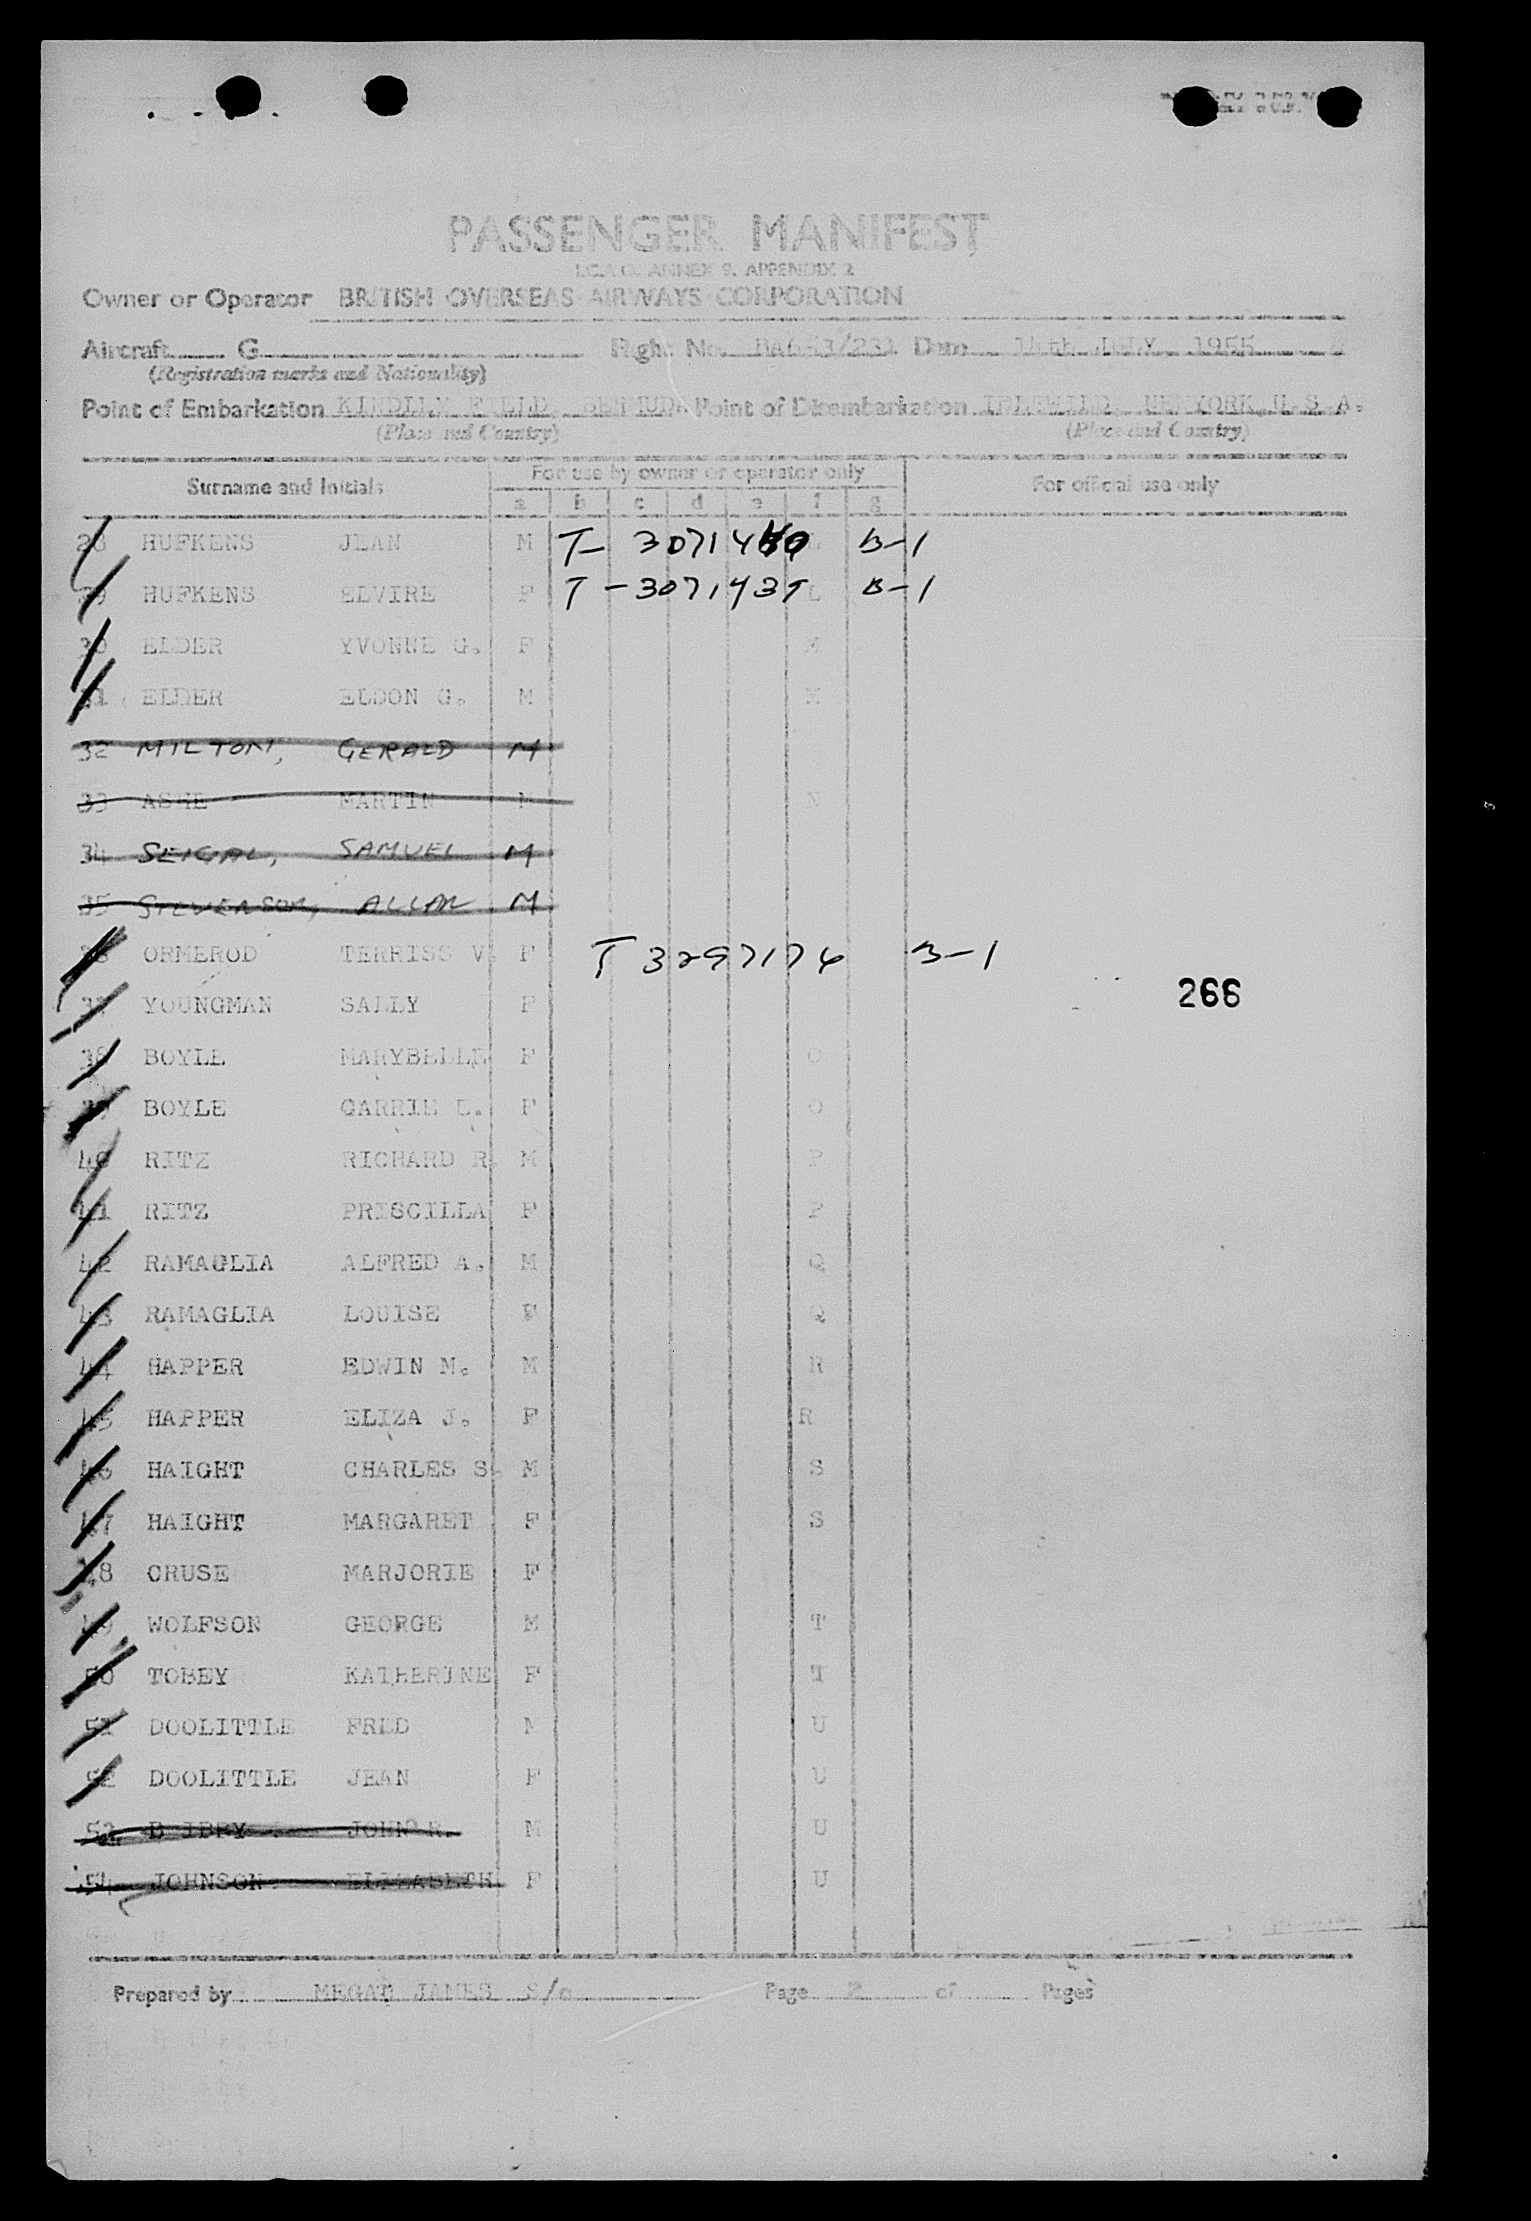 PASSENGER MANIFEST
I.C.A.O. ANNEX 9, APPENDIX 2
Owner or Operator BRITISH OVERSEAS AIRWAYS CORPORATION
Aircraft G Flight No. Date 14th JULY 1955
(Registration marks and Nationality)
Point of Embarkation KINDLEY FIELD, BERMUDA Point of Disembarkation IDLEWILD, NEWYORK, U.S.A.
(Place and Country) (Place and Country)
Surname and Initials For use by owner or operator only For official use only
a b c d e f g
28 HUFKENS JEAN M T- L B-1
29 HUFKENS ELVIRE F T-307143 L B-1
30 ELDER YVONNE G. F M
31 ELDER ELDON G. M M
32 MILTON, GERALD M
33 ASHE MARTIN M N
34 SEIGAL, SAMUEL M
35 STEVENSON, ALLAN M
36 ORMEROD TERRISS V. F T 3297174 B-1
37 YOUNGMAN SALLY F
266
38 BOYLE MARYBELLE F O
39 BOYLE CARRIE L. F O
40 RITZ RICHARD R. M P
41 RITZ PRISCILLA F P
42 RAMAGLIA ALFRED A. M Q
43 RAMAGLIA LOUISE F Q
44 HAPPER EDWIN M. M R
45 HAPPER ELIZA J. F R
46 HAIGHT CHARLES S. M S
47 HAIGHT MARGARET F S
48 CRUSE MARJORIE F
49 WOLFSON GEORGE M T
50 TOBEY KATHERINE F T
51 DOOLITTLE FRED M U
52 DOOLITTLE JEAN F U
53 JOHN R. M U
54 JOHNSON ELIZABETH F U
Prepared by JAMES S/o Page 2 of Pages